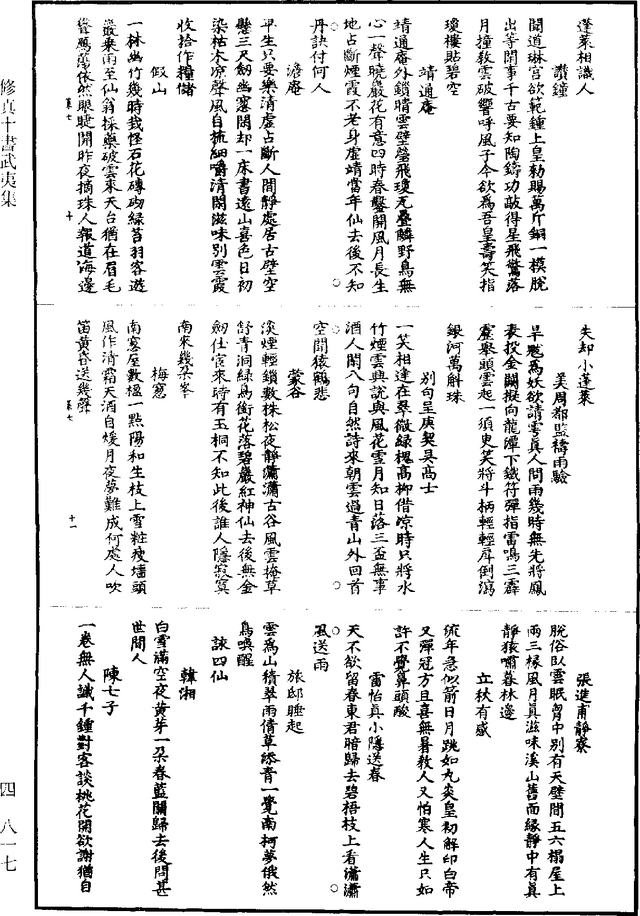 蓬萊相識人
讚鐘
聞道琳宮欲範鐘上皇勑賜萬斤銅一模脫
出等閑事千古要知陶鑄功敲得星飛驚落
月撞教雲破響呼風子今欲爲吾皇壽笑指
瓊樓貼碧空
靖通庵
靖通庵外鎖晴雲壁罄飛瓊瓦疊鱗野鳥無
心一聲曉巖花有意四時春鑿開風月長生
地占斷煙霞不老身虛靖當年仙去後不知
丹訣付何人
澹庵
平生只要樂清虛占斷人間靜處居古壁空
懸三尺劒幽窻閑却一床書遠山喜色日初
染枯木凉聲風自梳細嚼清閑滋味別雲霞
收拾作糧儲
假山
一林幽竹幾時栽怪石花磚砌綠苔羽客遊
巖乘雨至仙翁採藥破雲來天台猶在眉毛
鴈蕩依然眼睫開昨夜摘珠人報道海邊
失却小蓬萊
美周都監禱雨驗
旱魃爲妖欲請雩真人問雨幾時無先將鳳
表投金闕擬向龍潭下鐵符彈指雷鳴三霹
靂舉頭雲起一須臾笑將斗柄輕輕戽倒瀉
銀河萬斛珠
別句呈庾契吳高士
一笑相逢在翠微綠槐高柳借凉時只將水
竹煙雲興說與風花雪月知日落三盃無事
酒人閑八句自然詩來朝雲過青山外回首
空間猿鶴悲
蒙谷
淡煙輕鎖數株松夜靜瀟瀟古谷風雲掩草
舒青洞綠鳥銜花落碧巖紅神仙去後無金
劒仕宦來時有玉桐不知此後誰人隱寂寞
南來幾朵峯
梅窻
南窻屋數楹一點陽和生枝上雪粧瘦墻頭
風作清霜天酒自煖月夜夢難成何處人吹
笛黃昏送幾聲
張進甫靜寮
脫俗臥雲眠胷中別有天壁間五六榻屋上
兩三椽風月真滋味溪山舊面緣靜中有真
靜猿嘯暮林邊
立秋有感
流年急似箭日月跳如丸炎皇初解印白帝
又彈冠方且喜無暑教人又怕寒人生只如
許不覺鼻頭酸
雷怡真小隱送春
天不欲留春東君暗歸去碧梧枝上看瀟瀟
風送雨
旅邸睡起
雲爲山積翠雨倩草添青一覺南柯夢俄然
鳥喚醒
詠四仙
韓湘
白雪滿空夜黃芽一朵春藍關歸去後問甚
世間人
陳七子
一卷無人識千鍾對客談桃花開欲謝猶自
修真十書武夷集
四 八一七
十
十一